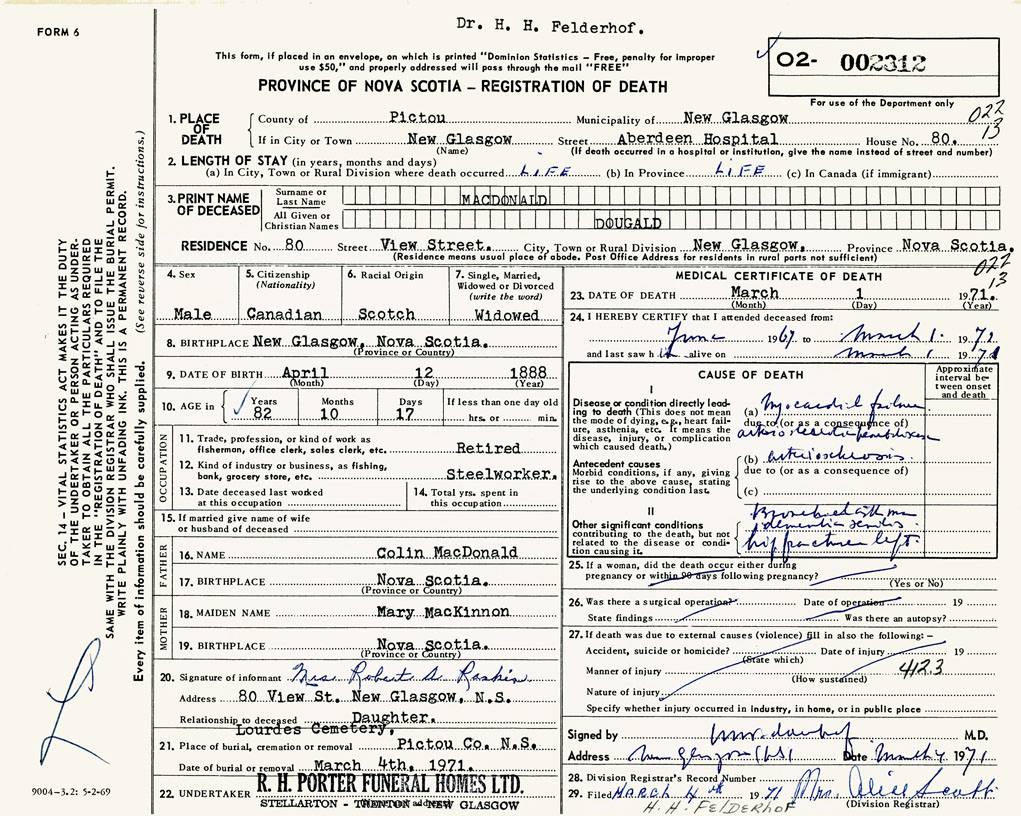 Dr. H. H. Felderhof.
FORM 6
This form, if placed in an envelope, on which is printed "Dominion Statistics – Free, penalty for improper
use $50," and properly addressed will pass through the mail "FREE"
PROVINCE OF NOVA SCOTIA – REGISTRATION OF DEATH
O2- 002312
For use of the Department only
022
13
1. PLACE OF DEATH
County of Pictou Municipality of New Glasgow
If in City or Town New Glasgow Street Aberdeen Hospital House No. 80.
(Name) (If death occurred in a hospital or institution, give the name instead of street and number)
2. LENGTH OF STAY (in years, months and days)
(a) In City, Town or Rural Division where death occurred LIFE (b) In Province LIFE (c) In Canada (if immigrant)
3. PRINT NAME OF DECEASED
Surname or Last Name MACDONALD
All Given or Christian Names DOUGALD
RESIDENCE No. 80 Street View Street. City, Town or Rural Division New Glasgow, Province Nova Scotia.
(Residence means usual place of abode. Post Office Address for residents in rural parts not sufficient)
022
13
4. Sex Male
5. Citizenship (Nationality) Canadian
6. Racial Origin Scotch
7. Single, Married, Widowed or Divorced (write the word) Widowed
8. BIRTHPLACE New Glasgow, Nova Scotia.
(Province or Country)
9. DATE OF BIRTH April 12 1888
(Month) (Day) (Year)
10. AGE in Years 82 Months 10 Days 17 If less than one day old hrs. or min.
OCCUPATION
11. Trade, profession, or kind of work as
fisherman, office clerk, sales clerk, etc. Retired
12. Kind of industry or business, as fishing,
bank, grocery store, etc. Steelworker.
13. Date deceased last worked
at this occupation
14. Total yrs. spent in
this occupation
15. If married give name of wife
or husband of deceased
FATHER
16. NAME Colin MacDonald
17. BIRTHPLACE Nova Scotia.
(Province or Country)
MOTHER
18. MAIDEN NAME Mary MacKinnon
19. BIRTHPLACE Nova Scotia.
(Province or Country)
20. Signature of informant Mrs. Robert A. Rankin
Address 80 View St. New Glasgow, N.S.
Relationship to deceased Daughter.
Lourdes Cemetery,
21. Place of burial, cremation or removal Pictou Co. N.S.
Date of burial or removal March 4th, 1971.
22. UNDERTAKER R. H. PORTER FUNERAL HOMES LTD.
STELLARTON - TRENTON and NEW GLASGOW
MEDICAL CERTIFICATE OF DEATH
23. DATE OF DEATH March 1 1971.
(Month) (Day) (Year)
24. I HEREBY CERTIFY that I attended deceased from:
June 1967 to March 1. 1971
and last saw h alive on March 1 1971
CAUSE OF DEATH
Approximate interval between onset and death
I
Disease or condition directly leading to death (This does not mean the mode of dying, e.g., heart failure, asthenia, etc. It means the disease, injury, or complication which caused death.)
(a) Myocardial failure
due to (or as a consequence of)
Antecedent causes
Morbid conditions, if any, giving rise to the above cause, stating the underlying condition last.
(b) arteriosclerosis.
due to (or as a consequence of)
(c)
II
Other significant conditions
contributing to the death, but not related to the disease or condition causing it.
dementia senilis
hip fracture left
25. If a woman, did the death occur either during
pregnancy or within 90 days following pregnancy?
(Yes or No)
26. Was there a surgical operation? Date of operation 19
State findings Was there an autopsy?
27. If death was due to external causes (violence) fill in also the following: –
Accident, suicide or homicide? Date of injury 19
(State which)
Manner of injury 4123
(How sustained)
Nature of injury
Specify whether injury occurred in industry, in home, or in public place
Signed by M.D.
Address New Glasgow (NS) Date March 4 1971
28. Division Registrar's Record Number
29. Filed MARCH 4th 1971 Mrs. Alice Scott
(Division Registrar)
H. H. FELDERHOF
SEC. 14 – VITAL STATISTICS ACT MAKES IT THE DUTY
OF THE UNDERTAKER OR PERSON ACTING AS UNDER-
TAKER TO OBTAIN ALL THE PARTICULARS REQUIRED
IN THE "REGISTRATION OF DEATH" AND TO FILE THE
SAME WITH THE DIVISION REGISTRAR WHO SHALL ISSUE THE BURIAL PERMIT.
WRITE PLAINLY WITH UNFADING INK. THIS IS A PERMANENT RECORD.
Every item of information should be carefully supplied. (See reverse side for instructions.)
9004-3.2: 5-2-69